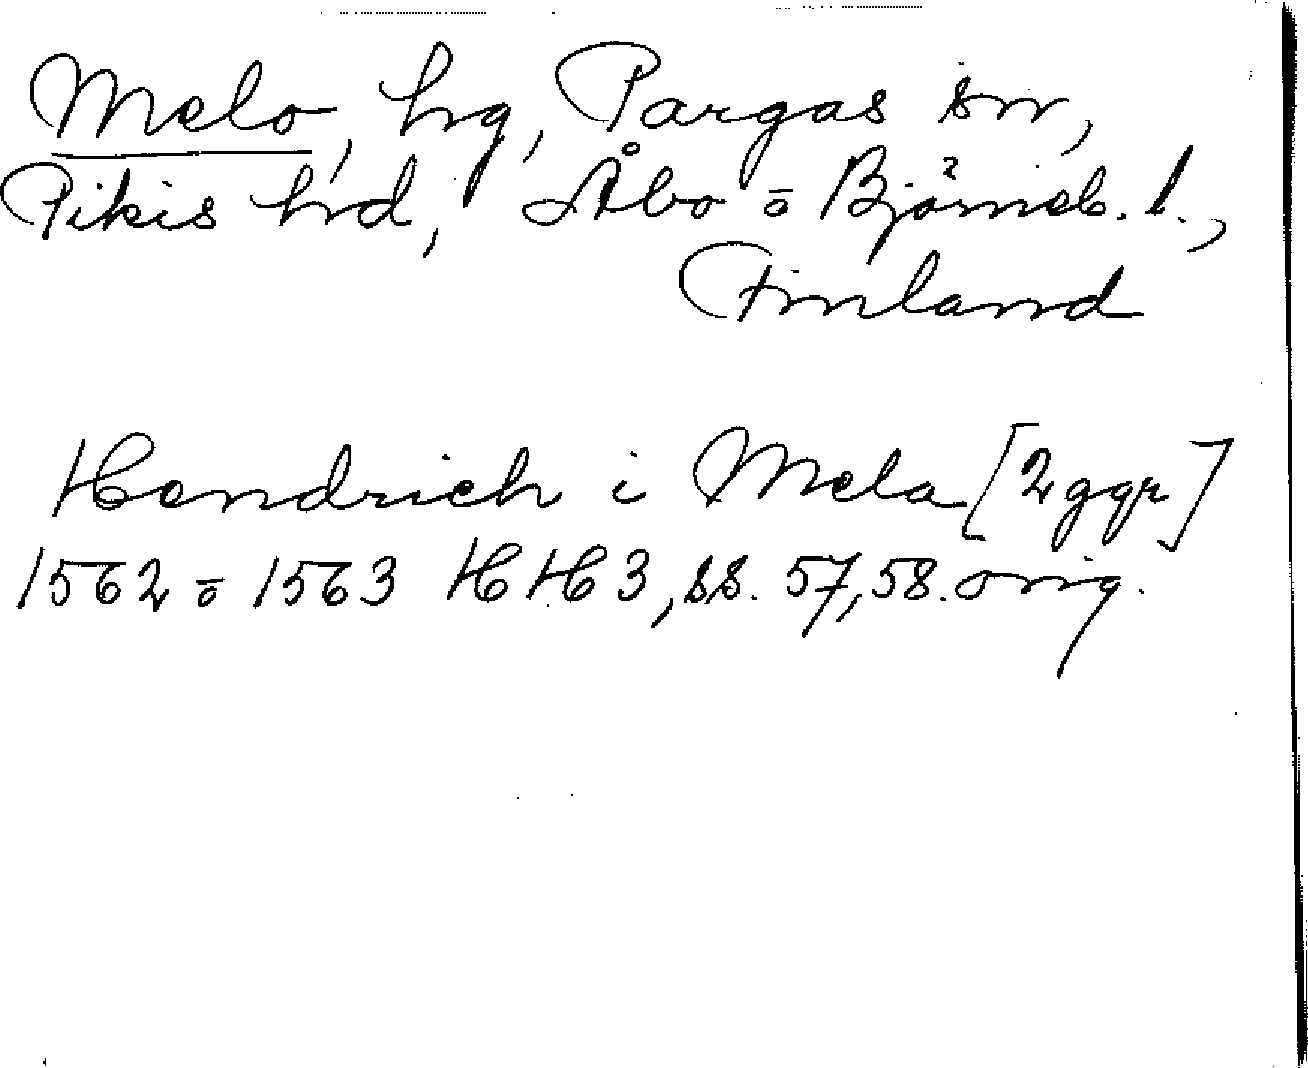 Melo, hg, Pargas sn,
Pikis hrd, Åbo o Björneb. l.,
Finland
Hendrich i Mela [2 ggr]
1562 o 1563 HH 3, ss. 57, 58. orig.